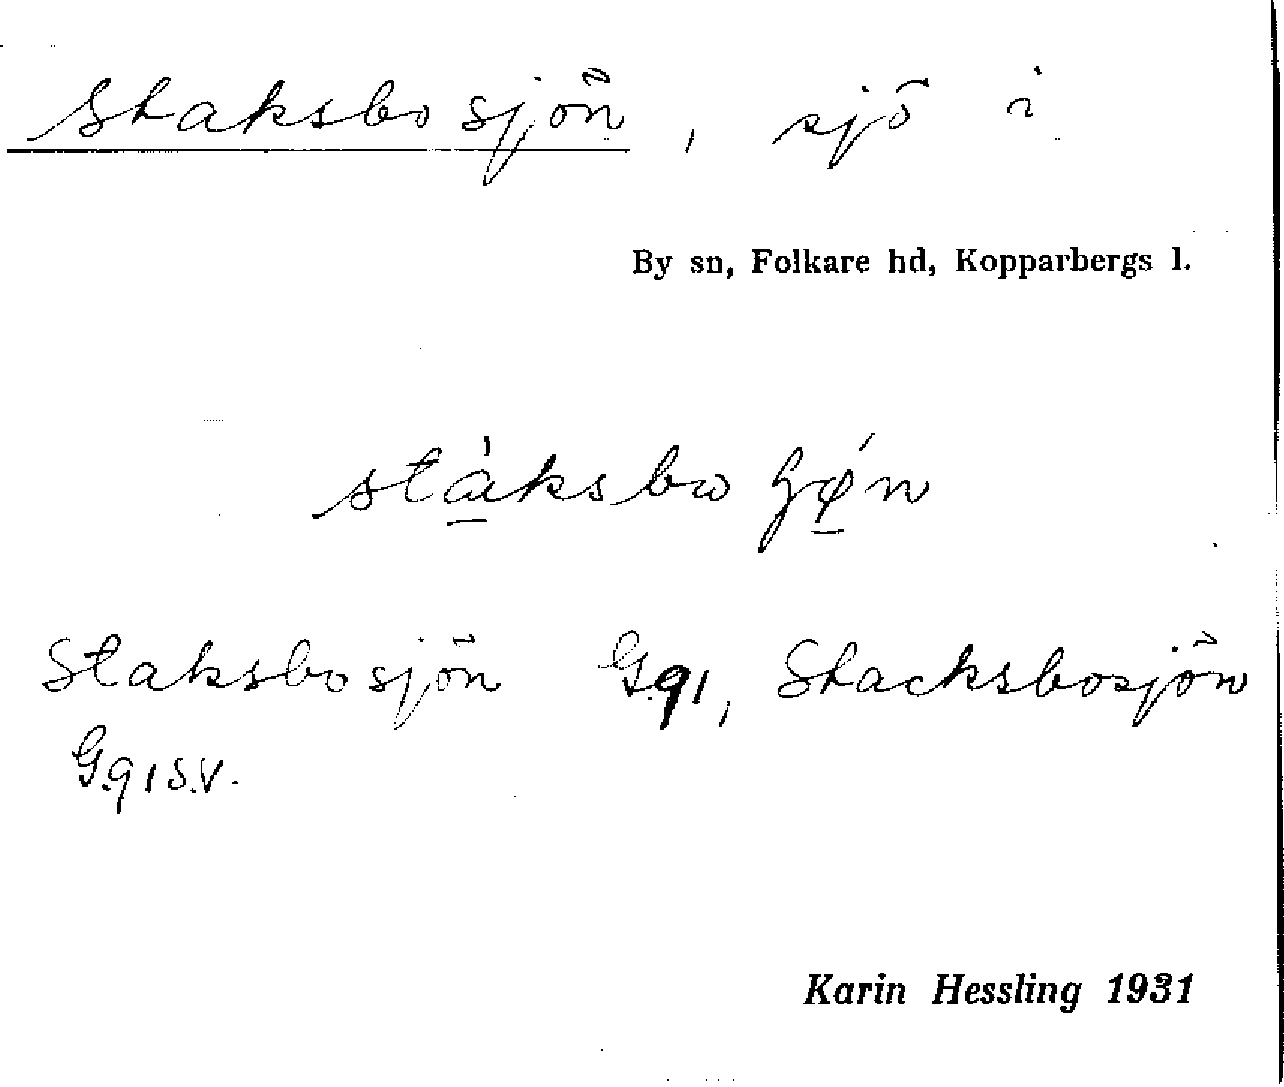 Staksbosjön, sjö i
By sn, Folkare hd, Kopparbergs l.
Staksbosjön G.91, Stacksbosjön
G.91 S.V.
Karin Hessling 1931